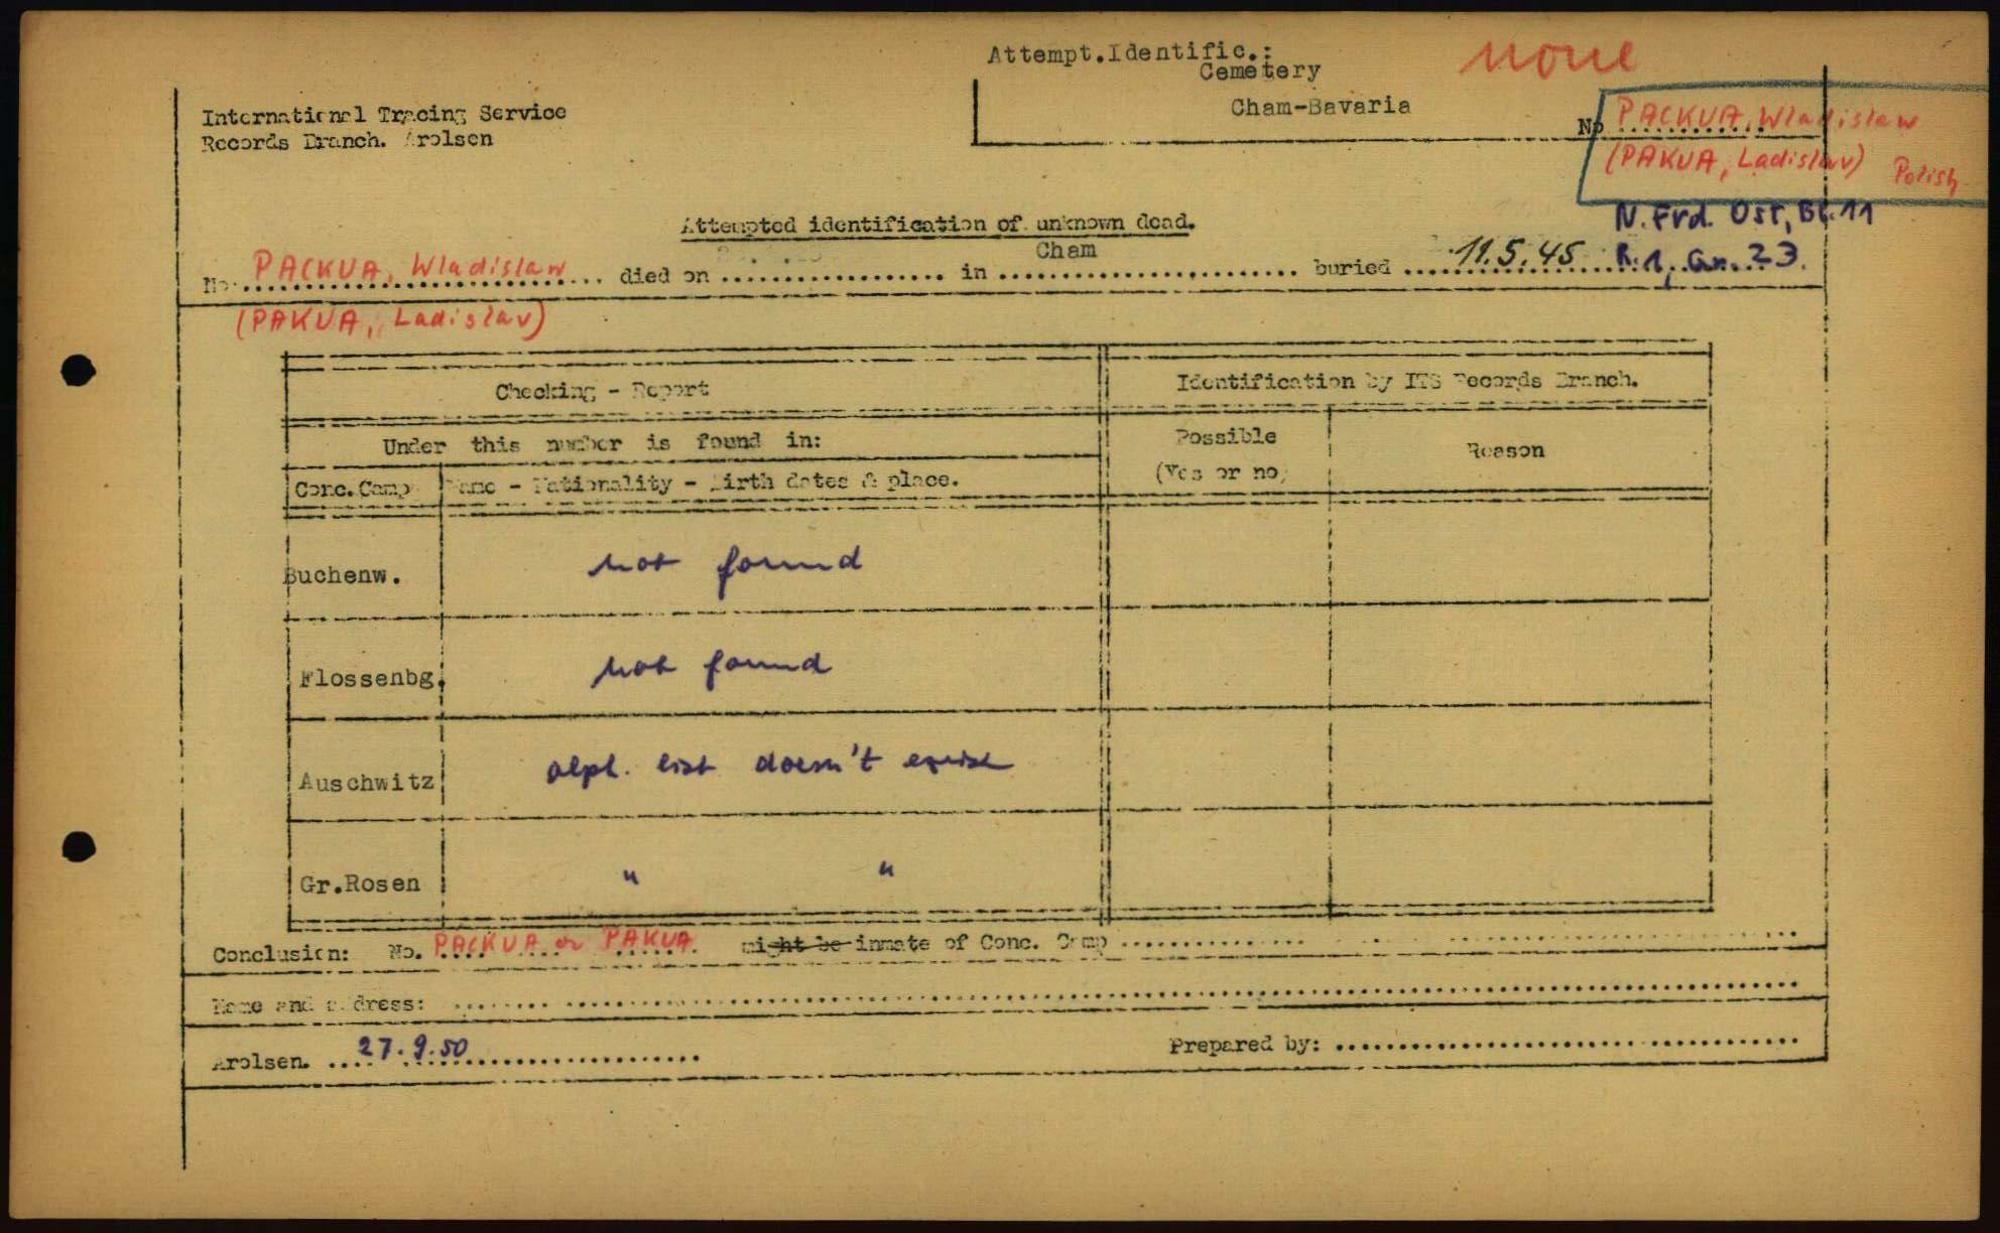 Attempt.Identific.:
none
Cemetery
Cham-Bavaria
International Tracing Service
Records Branch. Arolsen
No PACKUA, Wladislaw
(PAKUA, Ladislav) Polish
N. Frd. Ost, Bl. 11
R. 1, Gr. 23.
Attempted identification of unknown dead.
No. PACKUA, Wladislaw died on ........ in Cham buried 11.5.45
(PAKUA, Ladislav)
Checking - Report
Identification by ITS Records Branch.
Under this number is found in:
Possible
(Yes or no)
Reason
Conc.Camp Name - Nationality - Birth dates & place.
Buchenw. not found
Flossenbg. not found
Auschwitz alph. list doesn't exist
Gr.Rosen " "
Conclusion: No. PACKUA or PAKUA might be inmate of Conc. Camp ........
Name and address: ........
Arolsen. 27.9.50
Prepared by: ........